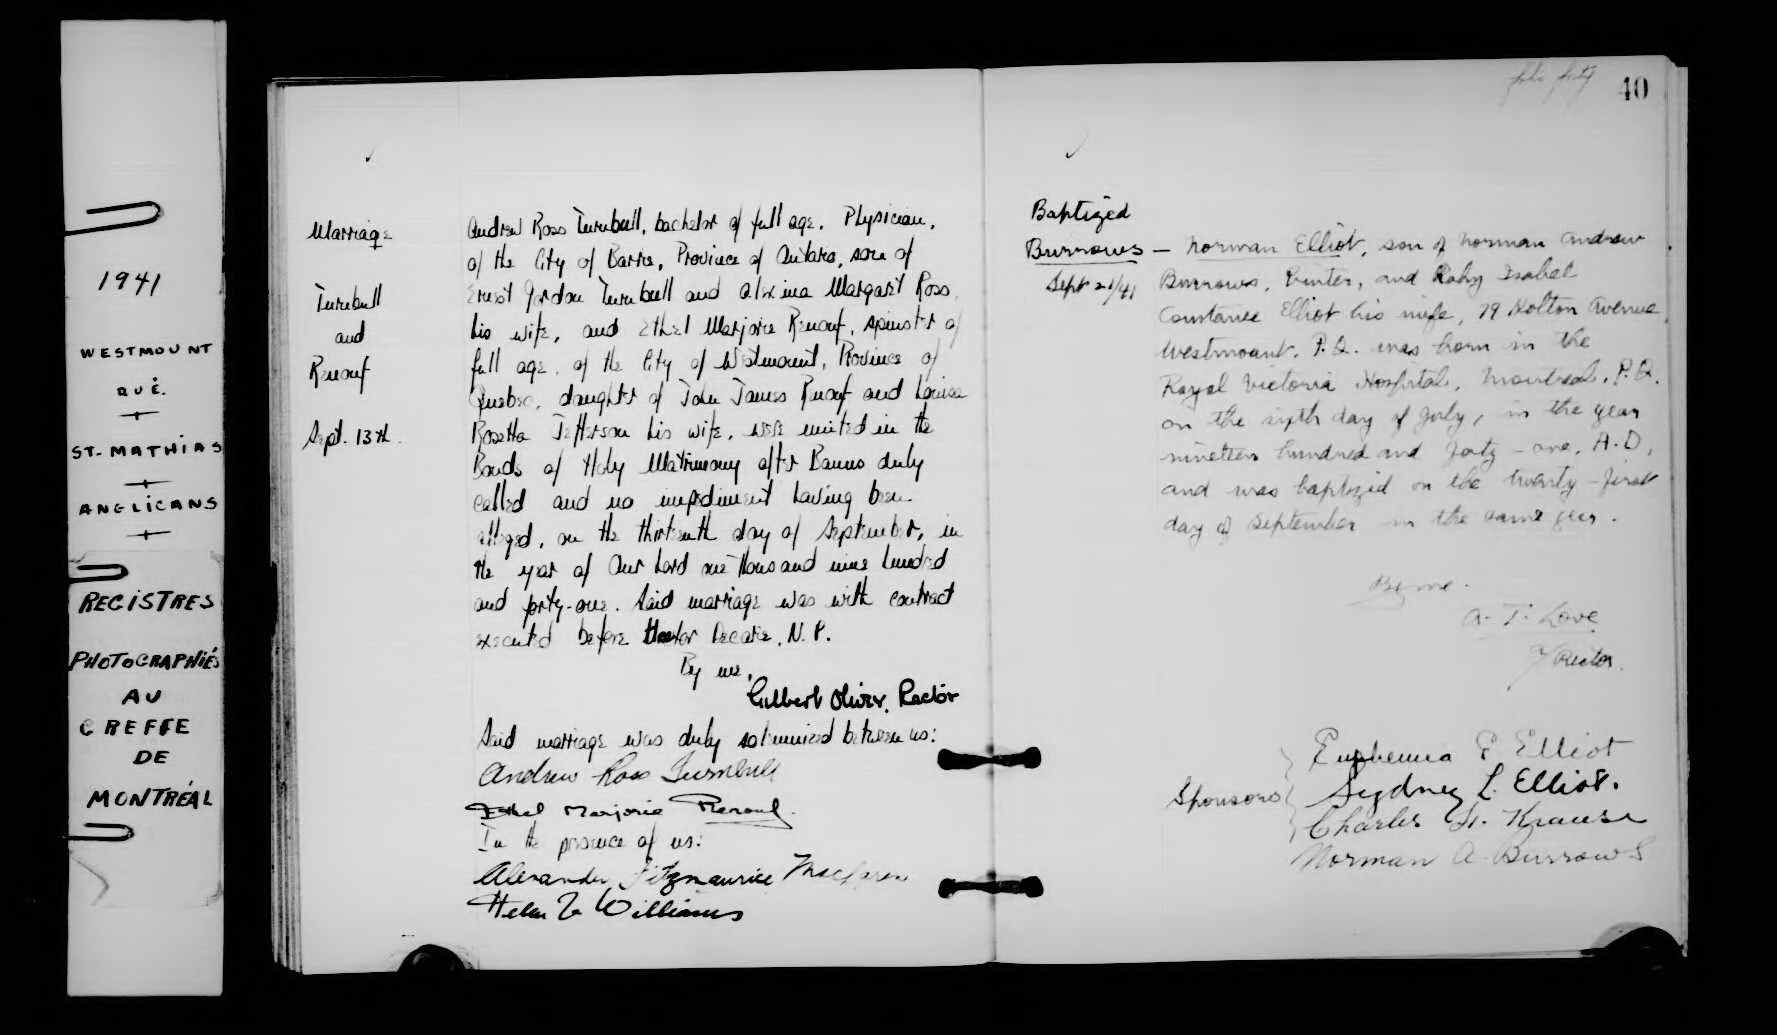 1941
WESTMOUNT
QUÉ.
ST-MATHIAS
ANGLICANS
REGISTRES
PHOTOGRAPHIÉS
AU
GREFFE
DE
MONTRÉAL
Marriage
Turnbull
and
Renouf
Sept. 13th.
Andrew Ross Turnbull, bachelor of full age, Physician,
of the City of Barrie, Province of Ontario, son of
Ernest Gordon Turnbull and Alexina Margaret Ross,
his wife, and Ethel Marjorie Renouf, spinster of
full age, of the City of Westmount, Province of
Quebec, daughter of John James Renouf and Louisa
Rosetta Jefferson his wife, were united in the
Bonds of Holy Matrimony after Banns duly
called and no impediment having been
alleged, on the thirteenth day of September, in
the year of Our Lord one thousand nine hundred
and forty-one. Said marriage was with contract
executed before Hector Decarie, N.P.
By me,
Gilbert Oliver, Rector
Said marriage was duly solemnized between us:
Andrew Ross Turnbull
Ethel Marjorie Renouf.
In the presence of us:
Alexander Fitzmaurice MacLaren
Helen V Williams
folio forty
40
Baptized
Burrows – Norman Elliot, son of Norman Andrew
Sept 21/41
Burrows, and Ruby Isabel
Constance Elliot his wife, 79 Holton Avenue,
Westmount, P.Q. was born in the
Royal Victoria Hospital, Montreal, P.Q.
on the sixth day of July, in the year
nineteen hundred and forty-one, A.D,
and was baptized on the twenty-first
day of September in the same year.
By me.
A. T. Love
Rector.
Sponsors
Euphemia P Elliot
Sydney L. Elliot.
Charles H. Krause
Norman A. Burrows